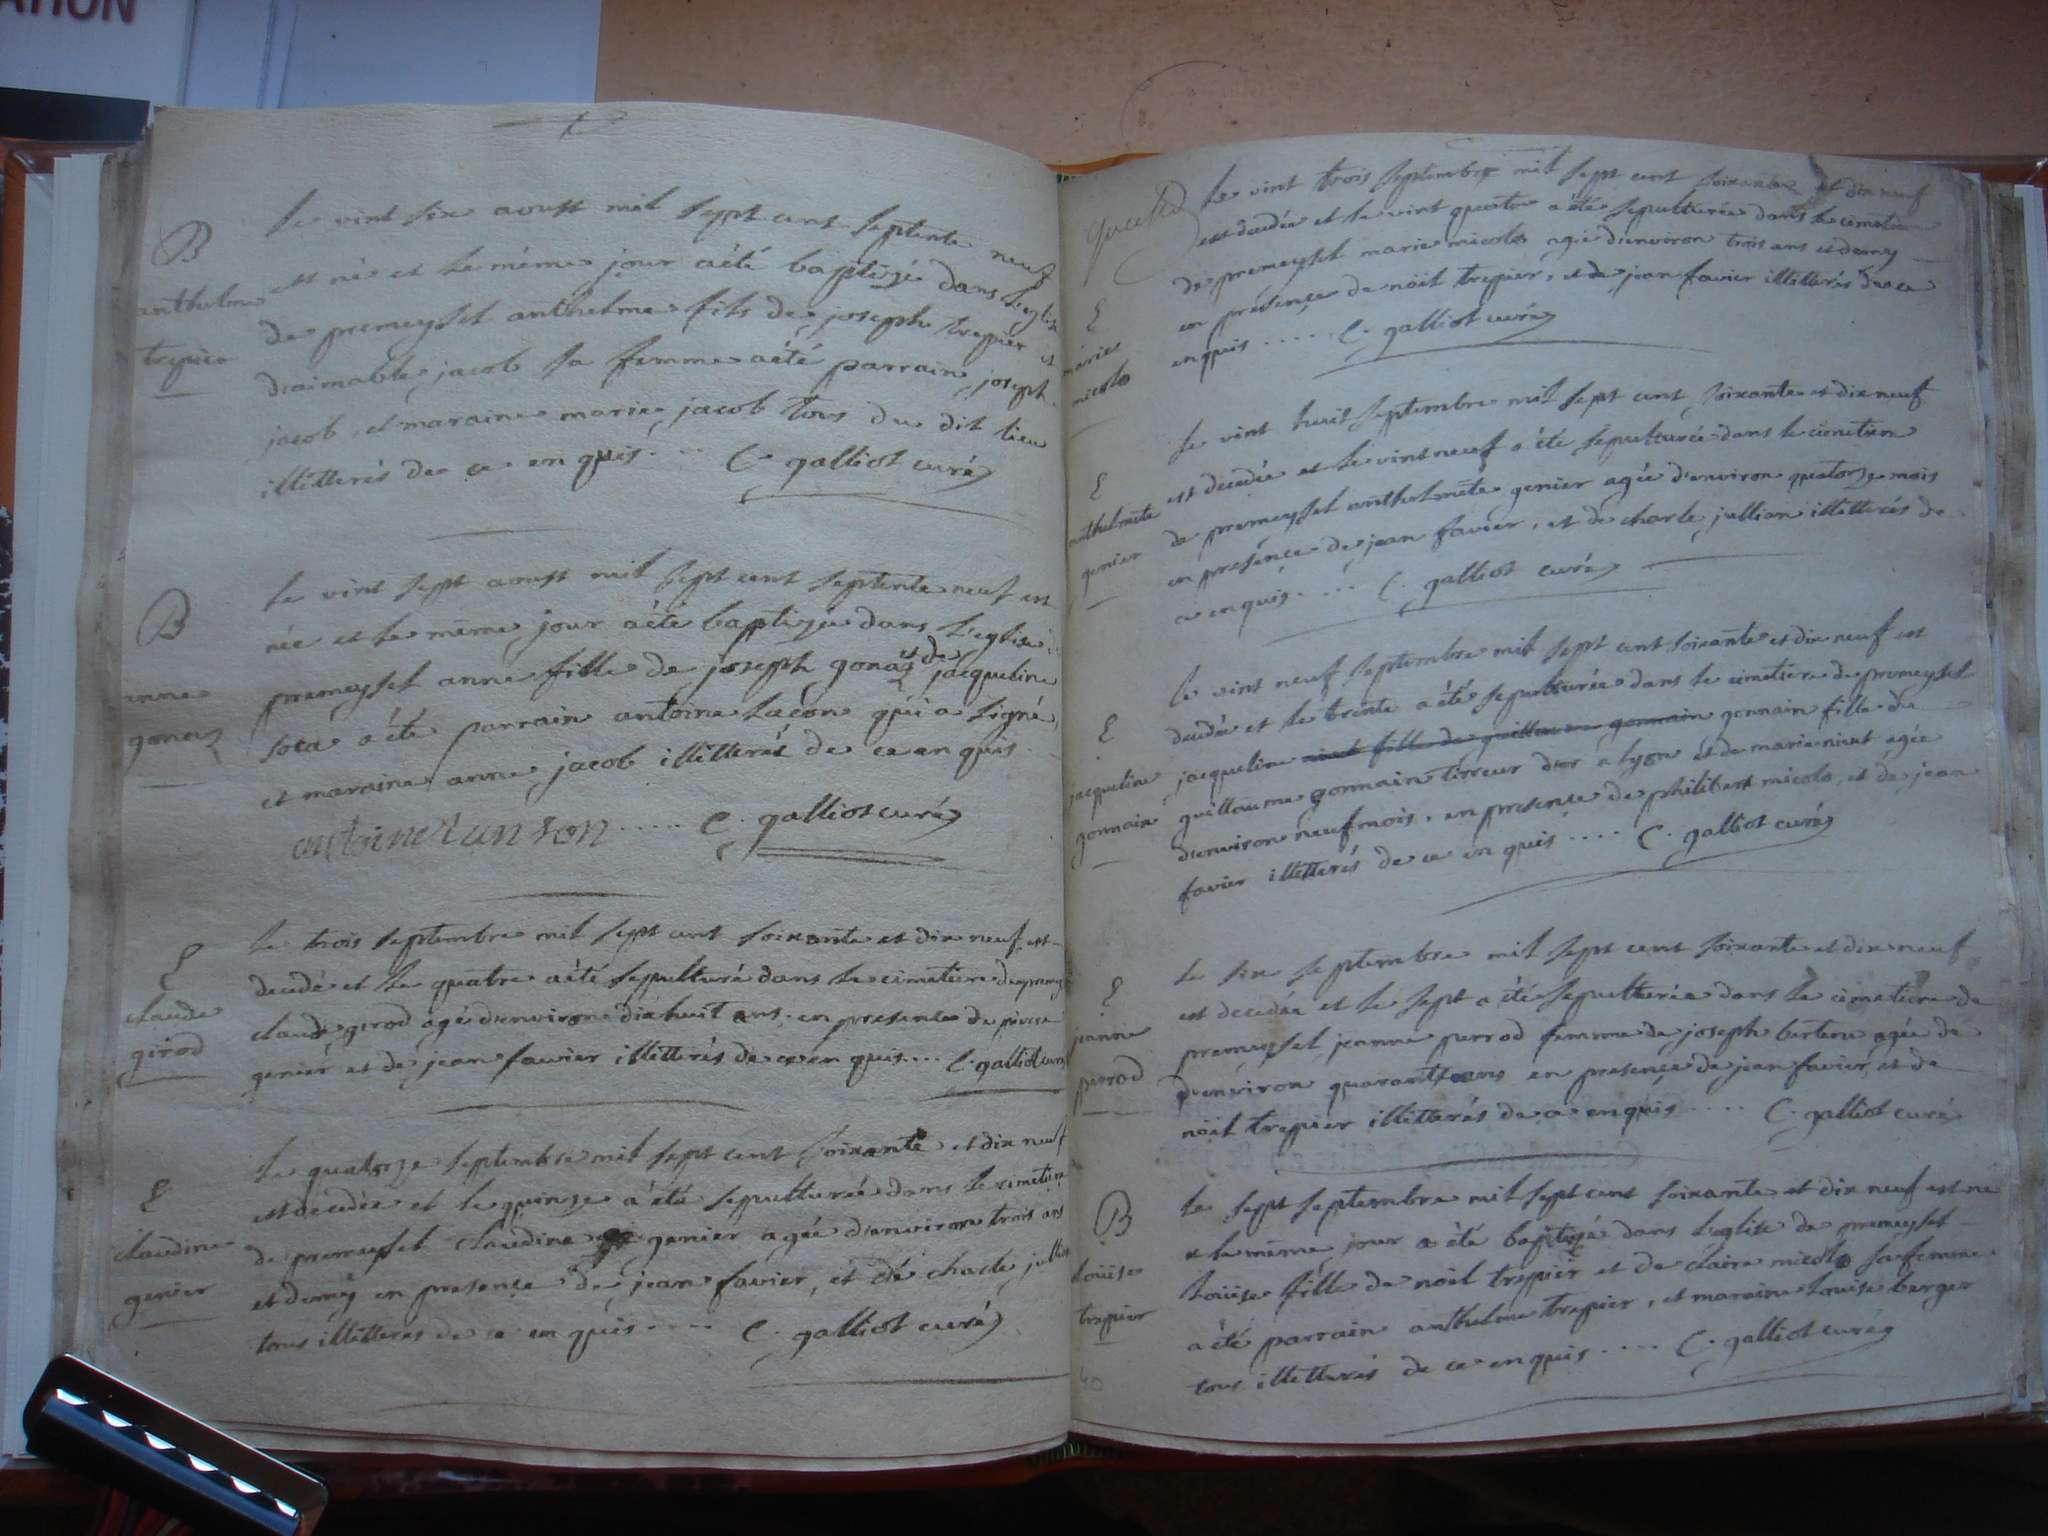 ATION
B
anthelme
trepier
le vint six aoust mil sept cent septente neuf
est né et le même jour a été baptizé dans l'eglise
de premeysel anthelme fils de joseph trepier et
d'aimable jacob sa femme a été parrain joseph
jacob, et maraine marie jacob tous du dit lieu
illitterés de ce enquis. .. C. galliot curé
B
anne
gonaz
le vint sept aoust mil sept cent septente neuf est
née et le même jour a été baptizée dans l'eglise
premeysel anne fille de joseph gonaz et de jacqueline
a été parrain antoine qui a signé,
et maraine anne jacob illitteré de ce enquis.
antoine ..... C. galliot curé
E
claude
girod
le trois septembre mil sept cent soixante et dix neuf est
decedé et le quatre a été sepulturé dans le cimetiere de
claude girod agé d'environ dix huit ans. en presence de pierre
genier et de jean favier illitterés de ce enquis.... C. galliot curé
E
claudine
genier
le quatorze septembre mil sept cent soixante et dix neuf
est decedée et le quinze a été sepulturée dans le cimetiere
de premeysel claudine genier agée d'environ trois ans
et demy en presence de jean favier, et de charle jullion
tous illitteres de ce enquis .... C. galliot curé
E
marie
micolo
le vint trois septembre mil sept cent soixante et dix neuf
est decedée et le vint quatre a été sepulturée dans le cimetiere
de premeysel marie micolo agée d'environ trois ans et demy
en présence de noël trepier, et de jean favier illitterés de ce
enquis ..... C. galliot curé
E
anthelmete
genier
le vint huit septembre mil sept cent soixante et dix neuf
est decedée et le vint neuf a été sepulturée dans le cimetiere
de premeysel anthelmète genier agée d'environ quatorze mois
en présence de jean favier, et de charle jullion illitterés de
ce enquis. .... C. galliot curé
E
jacqueline
gonnain
le vint neuf septembre mil sept cent soixante et dix neuf est
decedée et le trente a été sepulturée dans le cimetiere de premeysel
jacqueline fille de guillaume gonnain gonnain fille de
guillaume gonnain tireur d'or a lyon et de marie nivet agée
d'environ neuf mois, en presence de philibert micolo, et de jean
favier illitterés de ce enquis .... C. galliot curé
E
jeanne
perrod
le six septembre mil sept cent soixante et dix neuf
est decedée et le sept a été sepulturée dans le cimetiere de
premeysel jeanne perrod femme de joseph agée de
d'environ quarante ans en presence de jean favier, et de
noël trepier illitterés de ce enquis ..... C. galliot curé
B
Louise
trepier
le sept septembre mil sept cent soixante et dix neuf est né
et le même jour a été baptizée dans l'eglise de premeysel
Louise fille de noël trepier et de claire micolo sa femme
a été parrain anthelme trepier, et maraine Louise berger
tous illitterés de ce enquis .... C. galliot curé
40